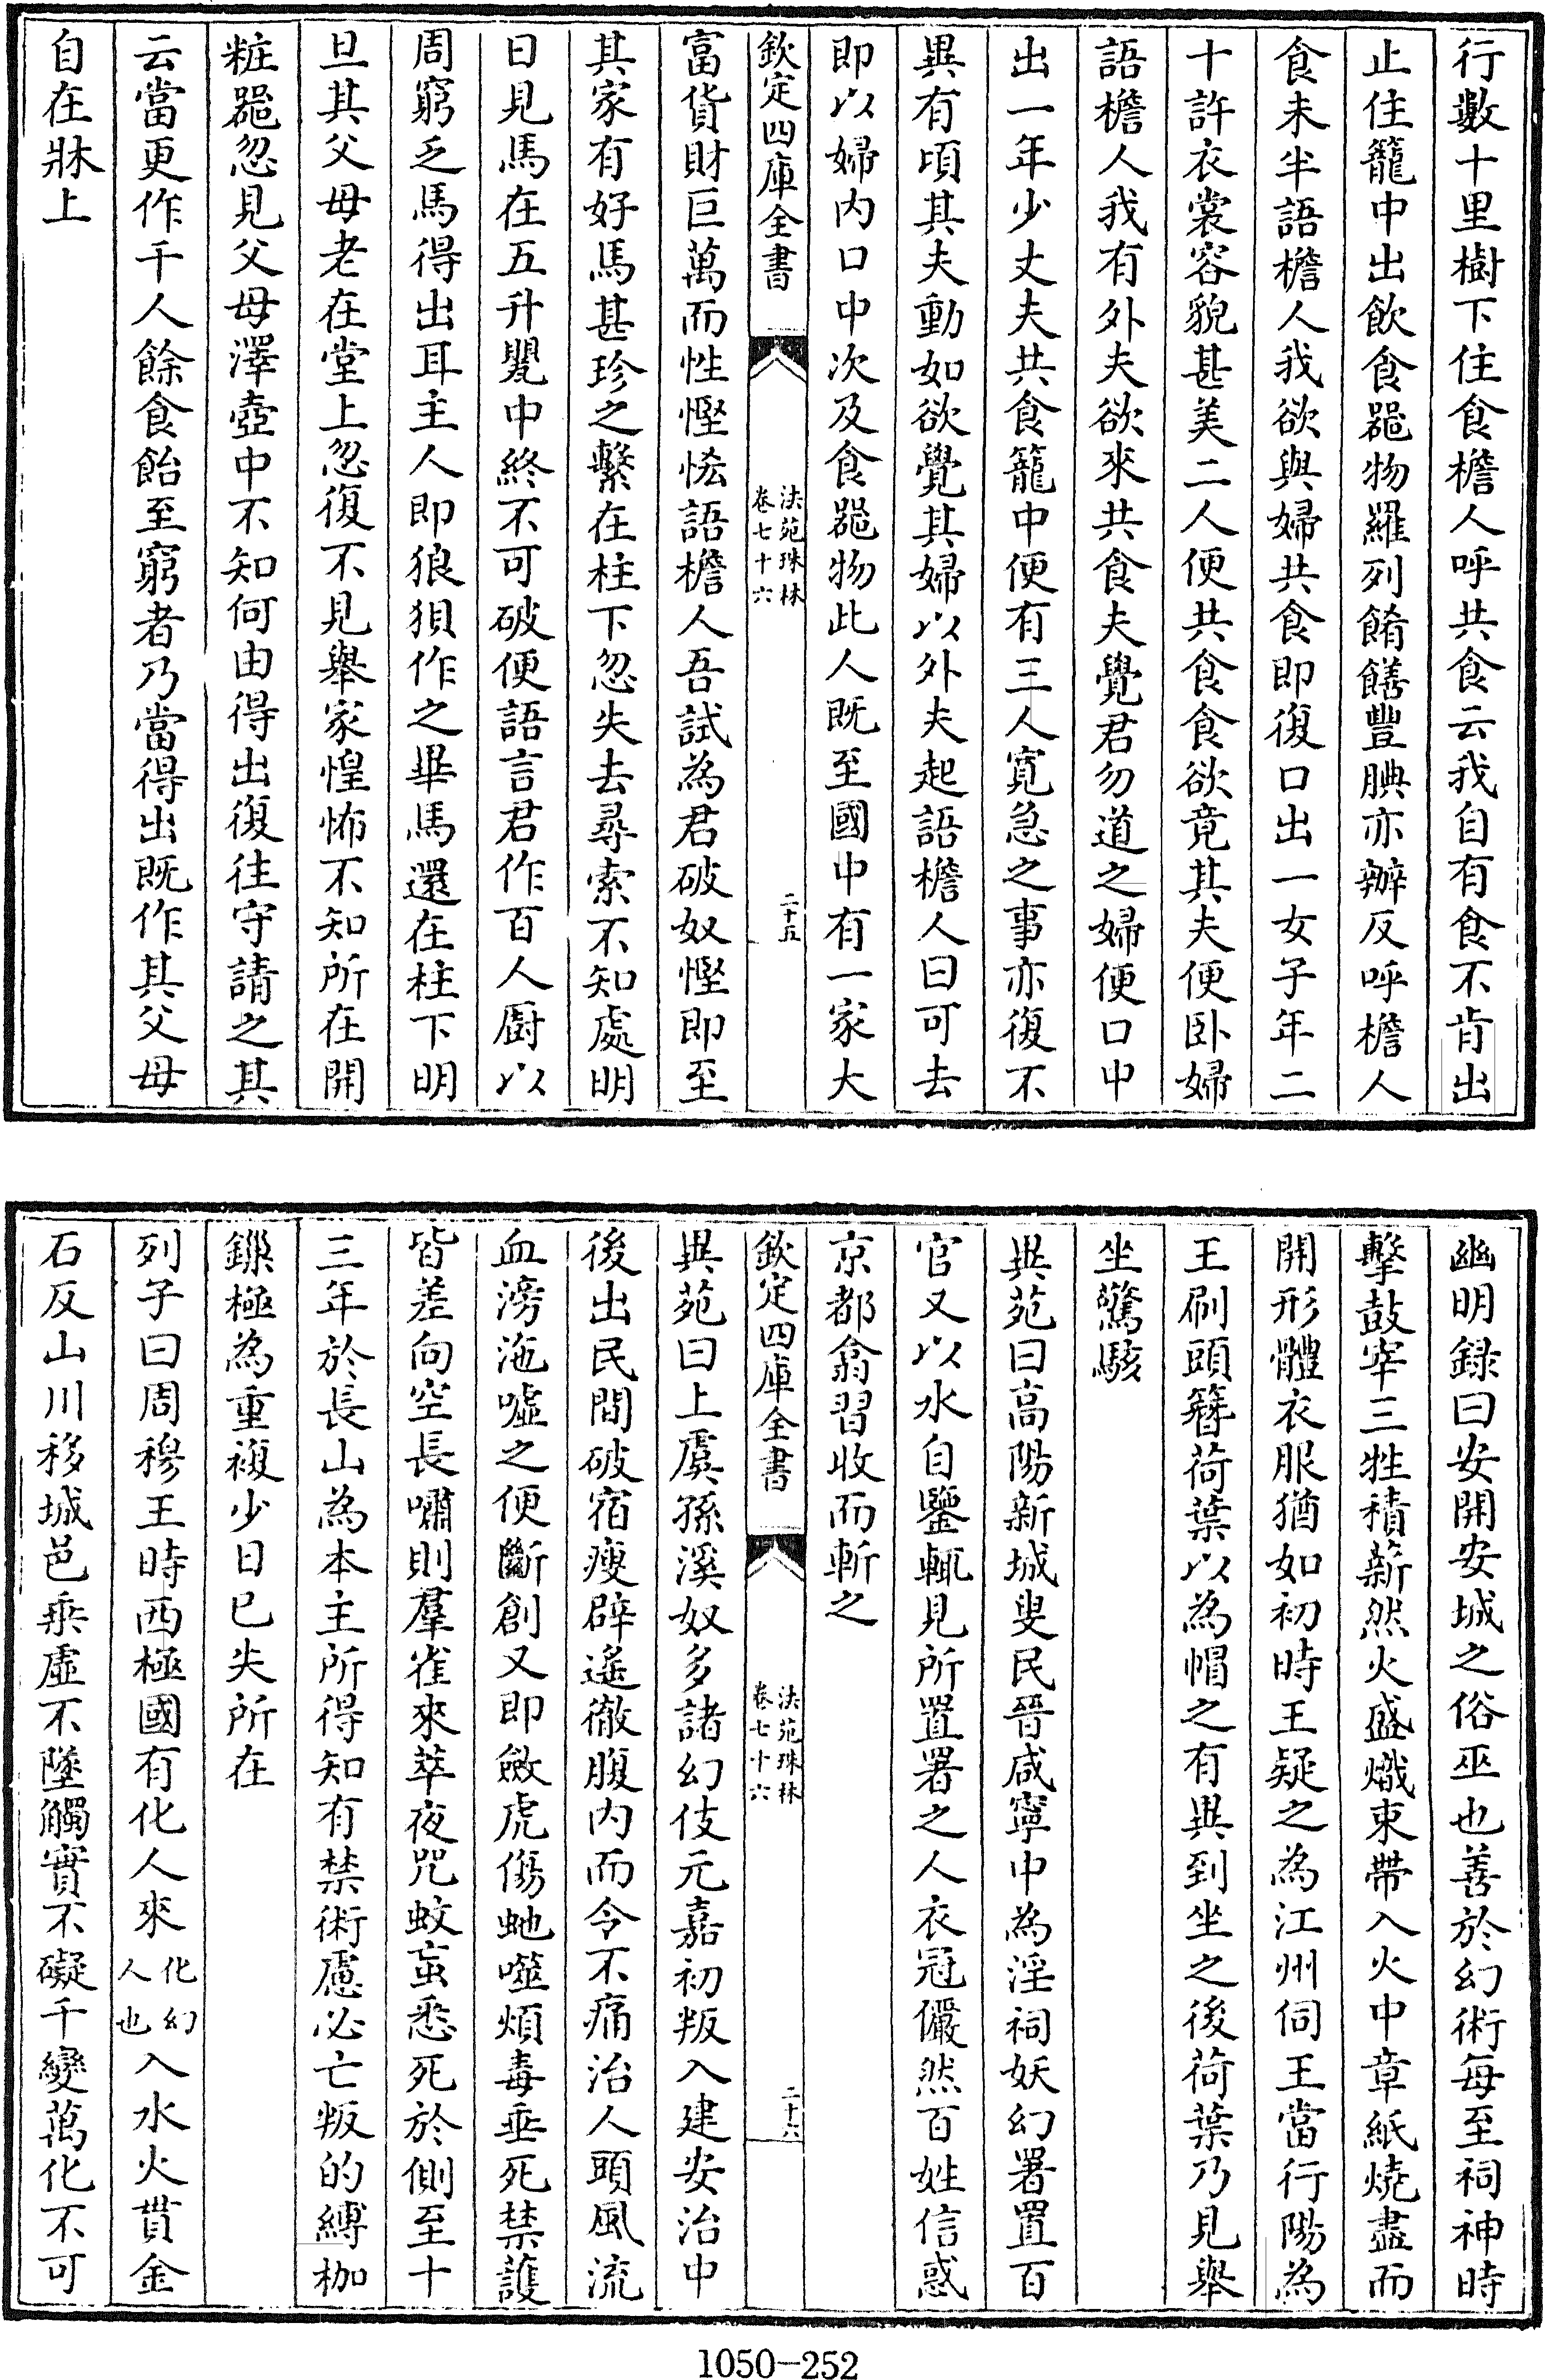 行數十里樹下住食檐人呼共食云我自有食不肯出
止住籠中出飲食噐物羅列餚饍豐腆亦辦反呼檐人
食未半語檐人我欲與婦共食即復口出一女子年二
十許衣裳容貌甚美二人便共食食欲竟其夫便卧婦
語檐人我有外夫欲來共食夫覺君勿道之婦便口中
出一年少丈夫共食籠中便有三人寛急之事亦復不
異有頃其夫動如欲覺其婦以外夫起語檐人曰可去
即以婦内口中次及食噐物此人既至國中有一家大
欽定四庫全書
法苑珠林
卷七十六
二十五
富貨財巨萬而性慳恡語檐人吾試為君破奴慳即至
其家有好馬甚珍之繫在柱下忽失去尋索不知處明
日見馬在五升甖中終不可破便語言君作百人厨以
周窮乏馬得出耳主人即狼狽作之畢馬還在柱下明
旦其父母老在堂上忽復不見舉家惶怖不知所在開
粧噐忽見父母澤壺中不知何由得出復徃守請之其
云當更作千人餘食飴至窮者乃當得出既作其父母
自在牀上
幽明録曰安開安城之俗巫也善於幻術每至祠神時
擊鼓宰三牲積薪然火盛熾束帶入火中章紙燒盡而
開形體衣服猶如初時王疑之為江州伺王當行陽為
王刷頭簪荷葉以為帽之有異到坐之後荷葉乃見舉
坐驚駭
異苑曰高陽新城叟民晉咸寧中為淫祠妖幻署置百
官又以水自鑒輒見所置署之人衣冠儼然百姓信惑
京都翕習收而斬之
欽定四庫全書
法苑珠林
卷七十六
二十六
異苑曰上虞孫溪奴多諸幻伎元嘉初叛入建安治中
後出民間破宿瘦辟遥徹腹内而令不痛治人頭風流
血滂沲嘘之便斷創又即斂虎傷虵噬煩毒垂死禁護
皆差向空長嘯則羣雀來萃夜咒蚊䖟悉死於側至十
三年於長山為本主所得知有禁術慮必亡叛的縛枷
鏁極為重複少日已失所在
列子曰周穆王時西極國有化人來化幻人也入水火貫金
石反山川移城邑乘虛不墜觸實不礙千變萬化不可
1050-252